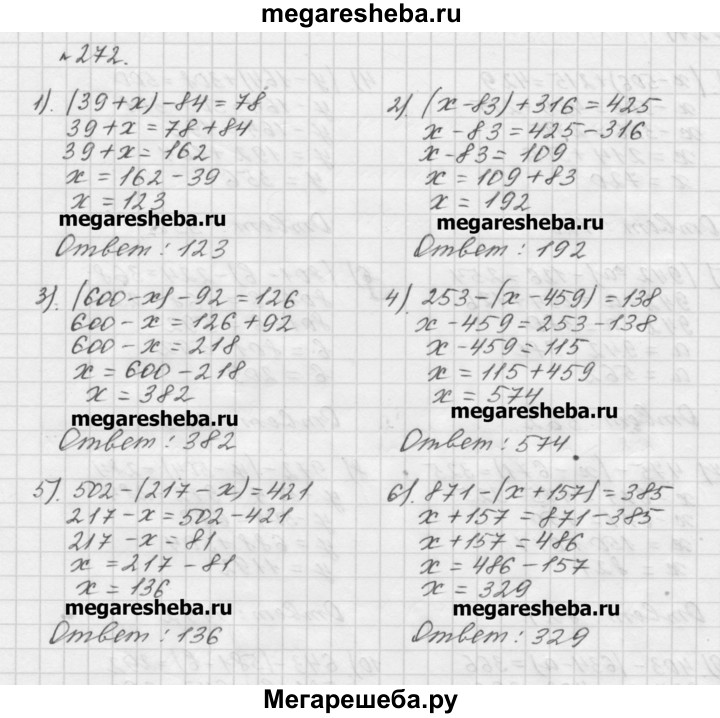 megaresheba.ru
№272.
1). (39+x)-84=78
39+x=78+84
39+x=162
x=162-39
x=123
megaresheba.ru
Ответ: 123
2). (x-83)+316=425
x-83=425-316
x-83=109
x=109+83
x=192
megaresheba.ru
Ответ: 192
3). (600-x)-92=126
600-x=126+92
600-x=218
x=600-218
x=382
megaresheba.ru
Ответ: 382
4). 253-(x-459)=138
x-459=253-138
x-459=115
x=115+459
x=574
megaresheba.ru
Ответ: 574.
5). 502-(217-x)=421
217-x=502-421
217-x=81
x=217-81
x=136
megaresheba.ru
Ответ: 136
6). 871-(x+157)=385
x+157=871-385
x+157=486
x=486-157
x=329
megaresheba.ru
Ответ: 329
Мегарешеба.ру